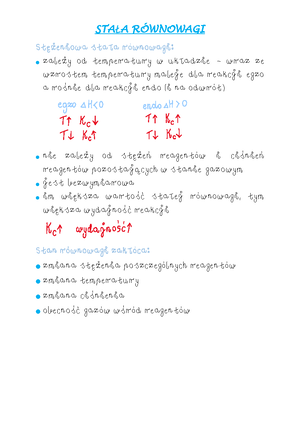 STAŁA RÓWNOWAGI
Stężeniowa stała równowagi:
• zależy od temperatury w układzie - wraz ze
wzrostem temperatury maleje dla reakcji egzo
a rośnie dla reakcji endo (i na odwrót)
egzo ΔH<0 endo ΔH>0
T↑ Kc↓ T↑ Kc↑
T↓ Kc↑ T↓ Kc↓
• nie zależy od stężeń reagentów i ciśnień
reagentów pozostających w stanie gazowym
• jest bezwymiarowa
• im większa wartość stałej równowagi, tym
większa wydajność reakcji
Kc↑ wydajność↑
Stan równowagi zakłóca:
• zmiana stężenia poszczególnych reagentów
• zmiana temperatury
• zmiana ciśnienia
• obecność gazów wśród reagentów